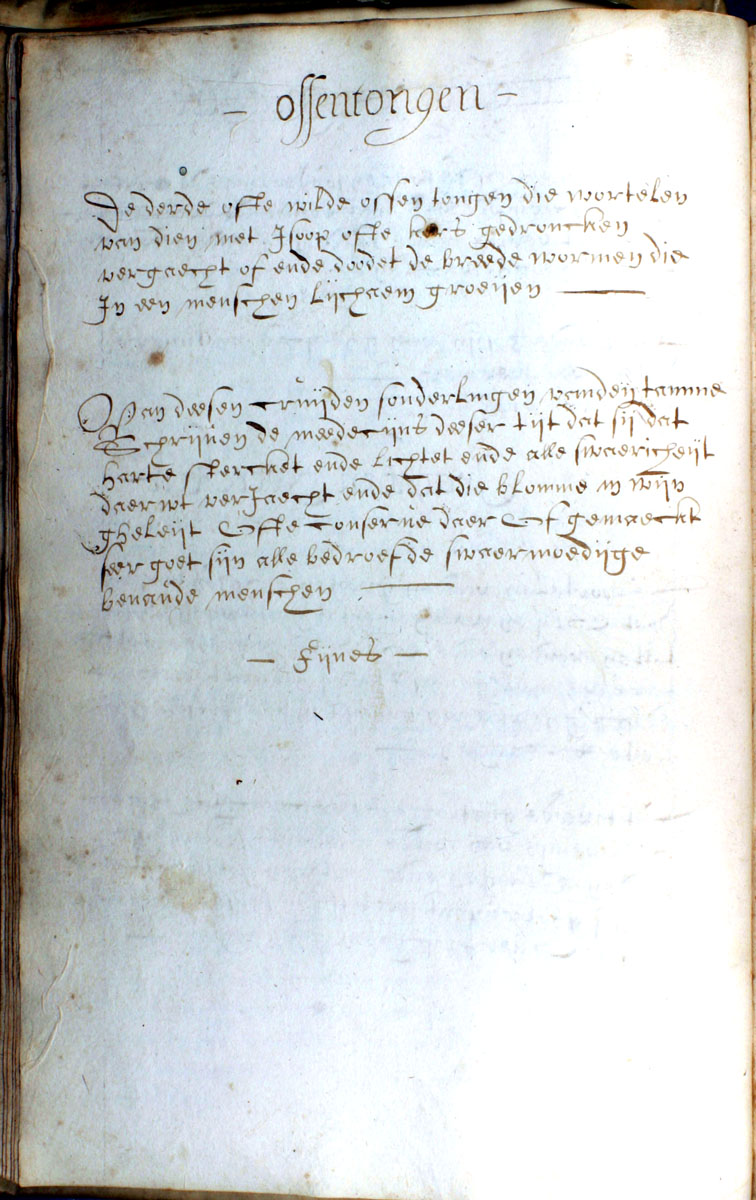 - ossentongen -
De derde offte wilde ossen tongen die wortelen
van dien met Isoop offte kers gedroncken
vergaecht of ende doodet de breede wormen die
In een menschen lijchaem groeijen
Van deesen cruijden sonderlingen vandeij tamme
Schrijuen de meedecijns deeser tijt dat sij dat
harte stercket ende lichtet ende alle swaericheijt
daer wt verJaecht ende dat die blomme in wijn
gheleijt Offte Conserue daer Of gemaeckt
seer goet sijn alle bedroefde swaermoedijge
benaude menschen
- Fijnes -